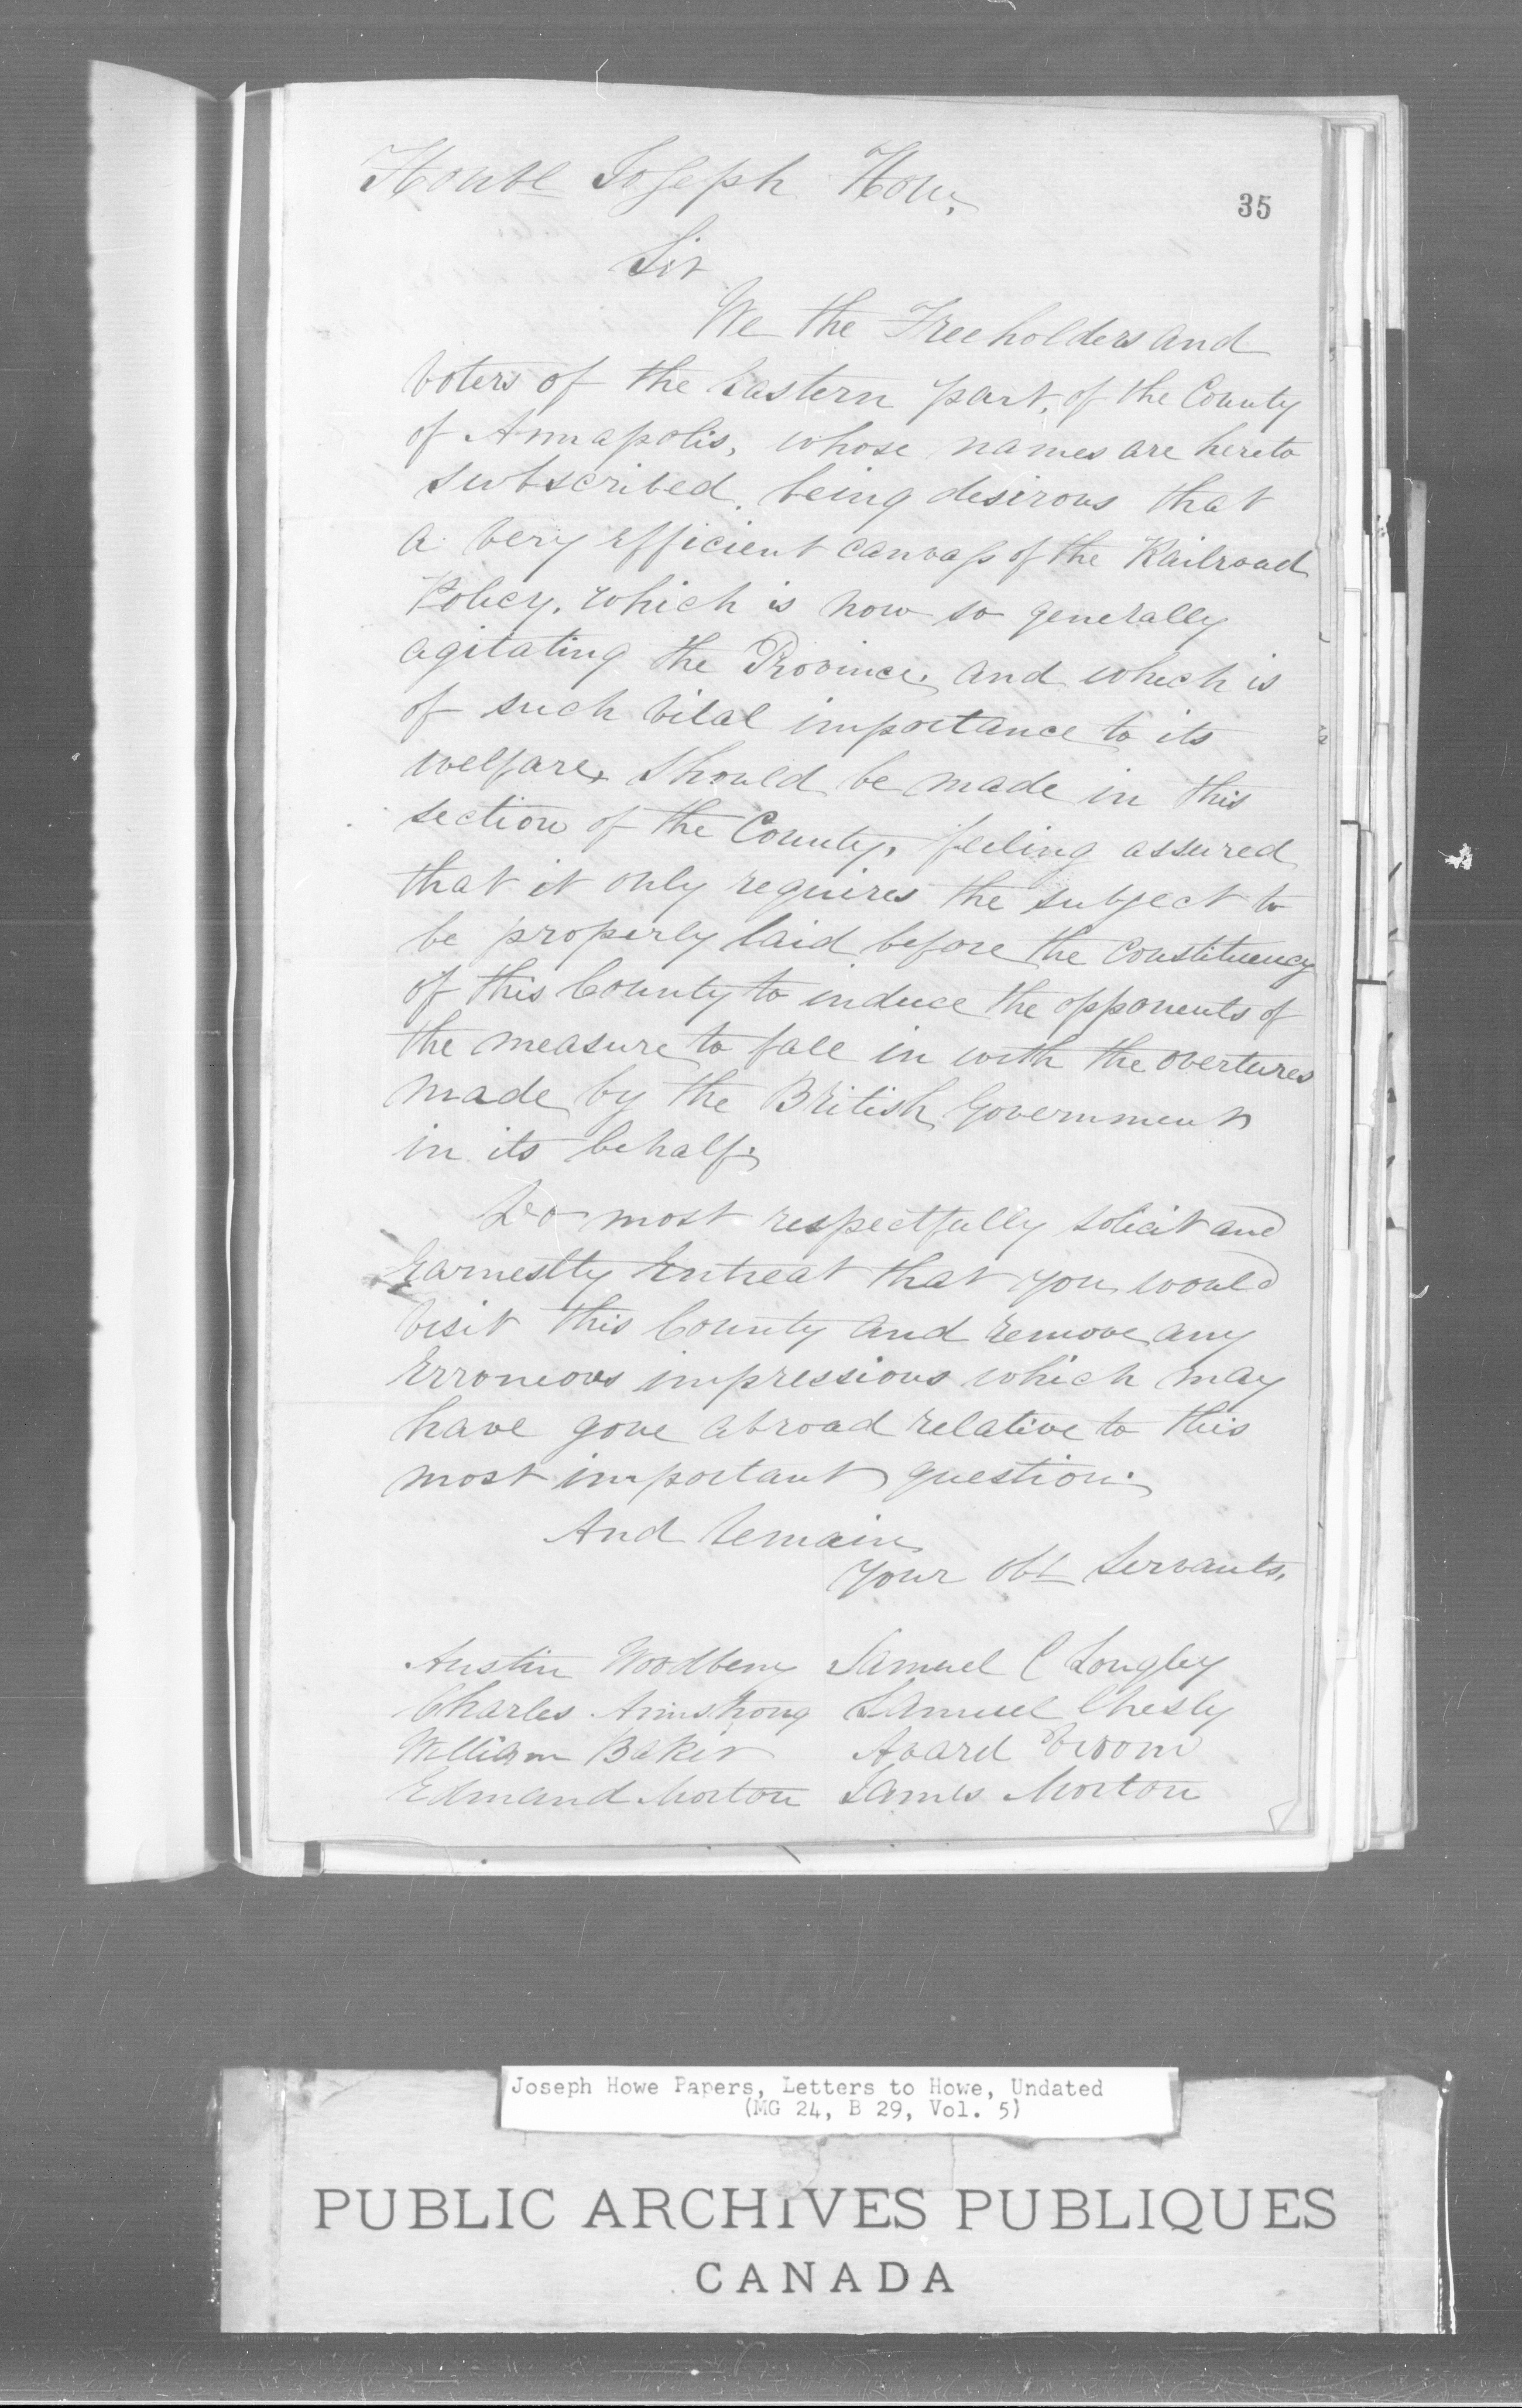 Honble Joseph Howe,
35
Sir
We the Freeholders and
voters of the Eastern part, of the County
of Annapolis, whose names are hereto
subscribed, being desirous that
a very efficient canvass of the Railroad
Policy, which is now so generally
agitating the Province, and which is
of such vital importance to its
welfare, should be made in this
section of the County, feeling assured
that it only requires the subject to
be properly laid before the Constituency
of this County to induce the opponents of
the measure to fall in with the overtures
made by the British Government
in its behalf.
Do most respectfully solicit and
Earnestly Entreat that you would
visit this County and remove any
Erroneous impressions which may
have gone abroad relative to this
most important question.
And remain
your obt Servants,
Austin Woodbery Samuel C Longley
Charles Armstrong Samuel Chesly
William Baker Avard Vroom
Edmand Morton James Morton
Joseph Howe Papers, Letters to Howe, Undated
(MG 24, B 29, Vol. 5)
PUBLIC ARCHIVES PUBLIQUES
CANADA